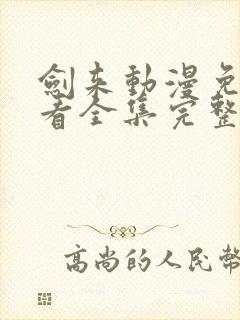 劍來動漫免
看全集完整
高尚的人民幣